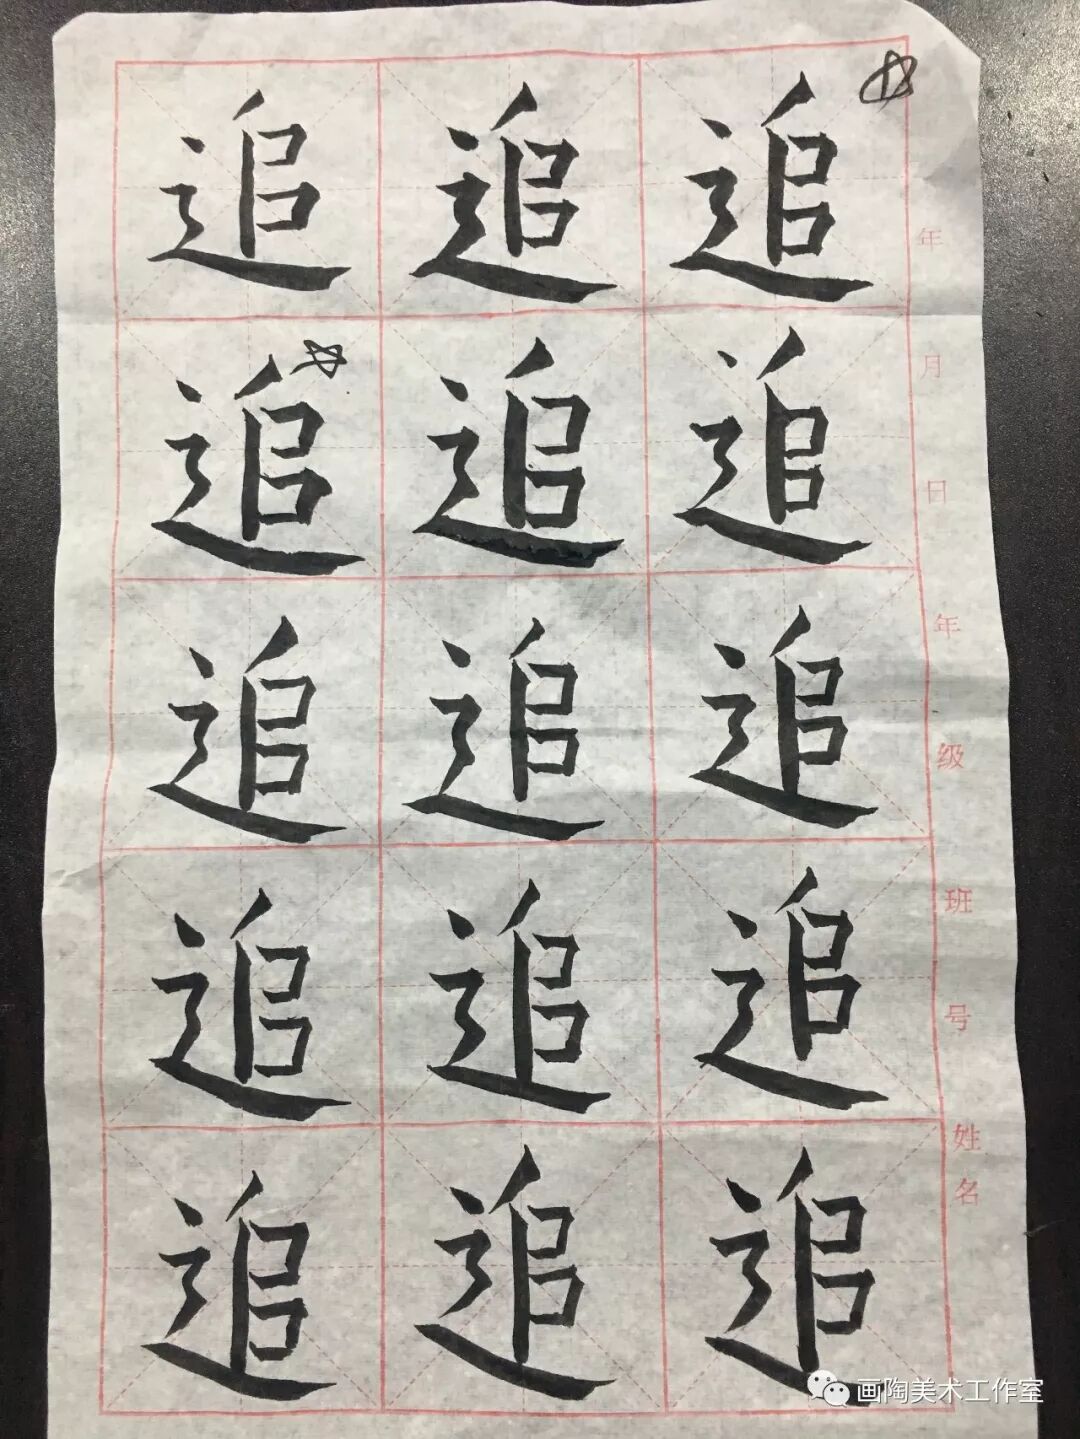 追追追
追追追
追追追
追追追
追追追
年 月 日 年 级 班 号 姓 名
画陶美术工作室